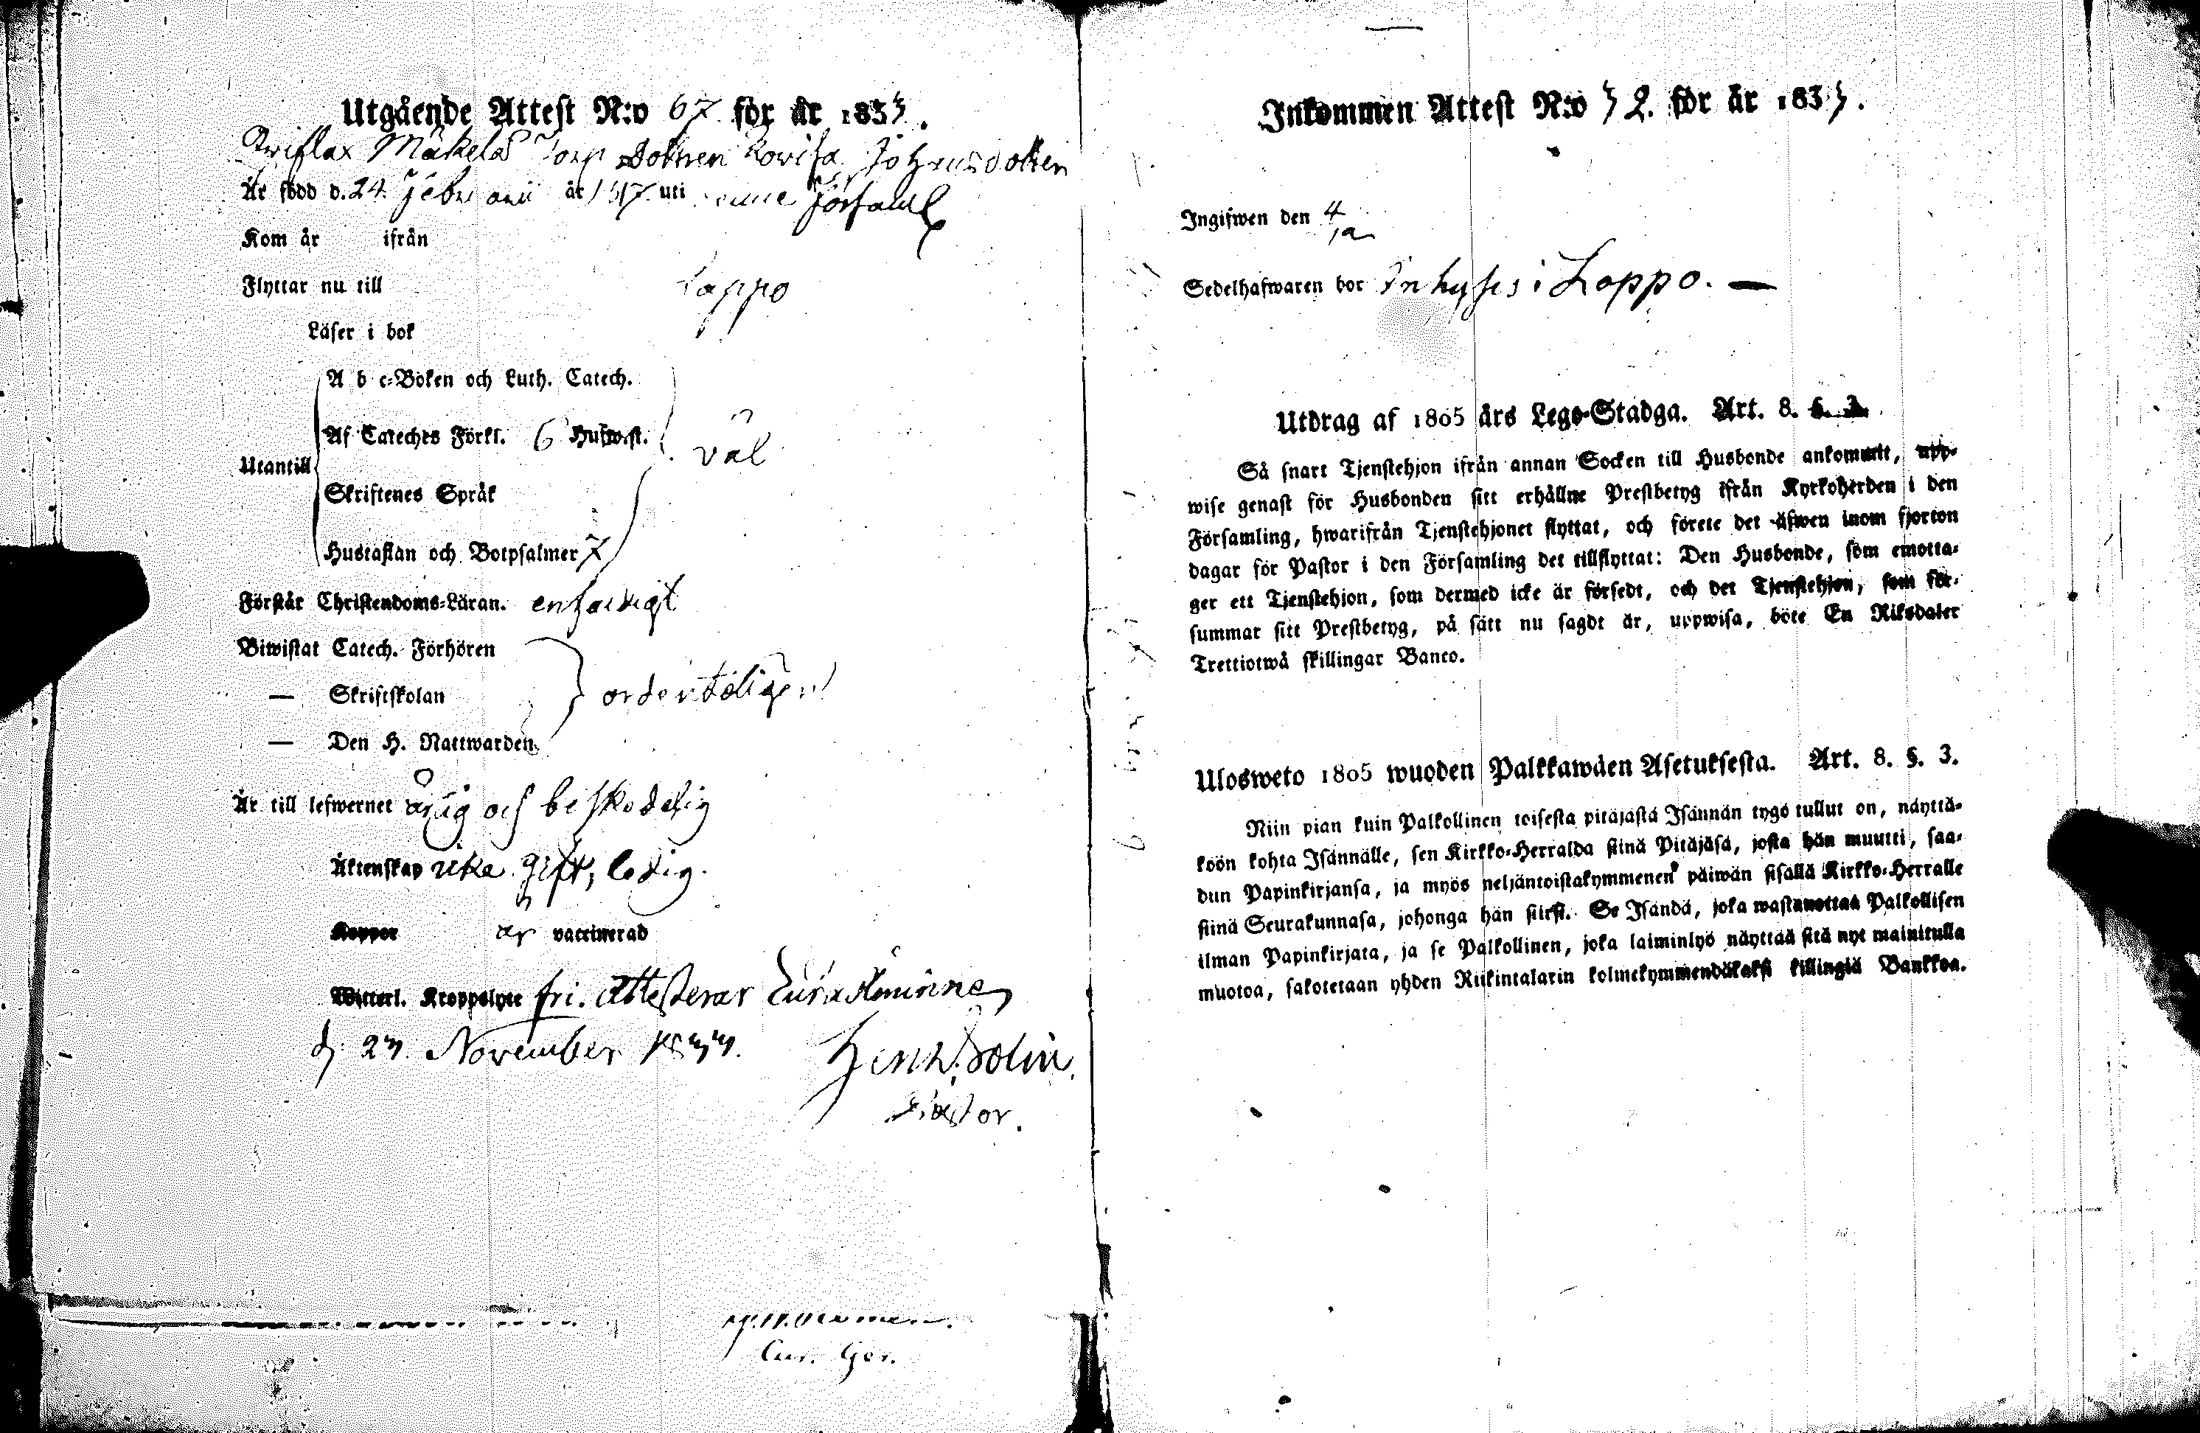 Utgående Attest N:o 67 för år 1833.
Mäkelä Torp Dottren Lovisa Johansdotter
Är född d. 24 Februarii år 1817 uti denne Församl
Kom år ifrån
Flyttar nu till Lappo
Läser i bok
A b c-Boken och Luth. Catech.
Af Cateches Förkl. 6 Hufwst. väl
Utantill
Skriftenes Språk
Hustaflan och Botpsalmer 7
Förstår Christendoms-Läran. enfaldigt
Biwistat Catech. Förhören
— Skriftskolan ordenteligen
— Den H. Nattwarden
Är till lefwernet ärlig och beskedelig
Äktenskap icke gift, ledig.
Koppor är vaccinerad
Witterl. Kroppslyte fri. Attesterar Euraåminne
d. 23. November 1833. Henr. Bolin.
Pastor.
Cur. Ger.
Inkommen Attest N:o 32. för år 1833.
Ingifwen den 4
Sedelhafwaren bor Inhyses i Lappo. —
Utdrag af 1805 års Lego-Stadga. Art. 8. §. 3.
Så snart Tjenstehjon ifrån annan Socken till Husbonde ankommit, upp-
wise genast för Husbonden sitt erhållne Prestbetyg ifrån Kyrkoherden i den
Församling, hwarifrån Tjenstehjonet flyttat, och förete det äfwen inom fjorton
dagar för Pastor i den Församling det tillflyttat: Den Husbonde, som emotta-
ger ett Tjenstehjon, som dermed icke är försedt, och det Tjenstehjon, som för-
summar sitt Prestbetyg, på sätt nu sagdt är, uppwisa, böte En Riksdaler
Trettiotwå skillingar Banco.
Ulosweto 1805 wuoden Palkkawäen Asetuksesta. Art. 8. §. 3.
Niin pian kuin Palkollinen toisesta pitäjästä Isännän tygö tullut on, näyttä-
köön kohta Isännälle, sen Kirkko-Herralda siinä Pitäjäsä, josta hän muutti, saa-
dun Papinkirjansa, ja myös neljäntoistakymmenen päiwän sisällä Kirkko-Herralle
siinä Seurakunnasa, johonga hän siirsi. Se Isändä, joka wastanottaa Palkollisen
ilman Papinkirjata, ja se Palkollinen, joka laiminlyö näyttää sitä nyt mainitulla
muotoa, sakotetaan yhden Riikintalarin kolmekymmendäkaksi killingiä Bankkoa.